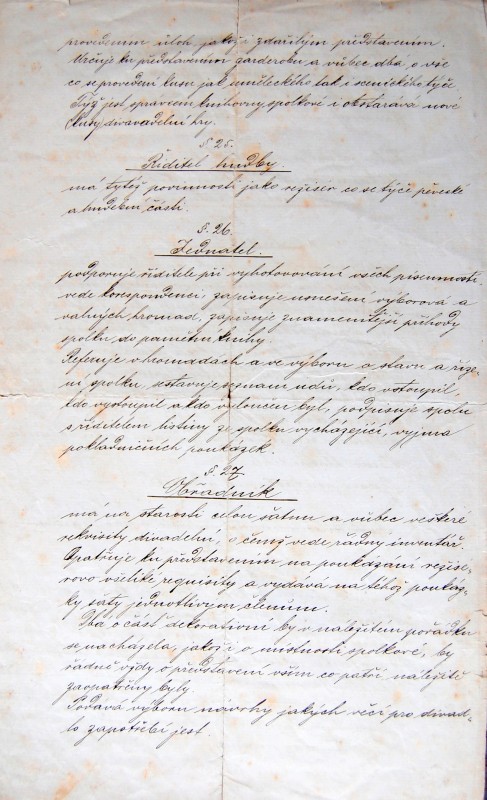 provedením úloh jakož i zdařilým představením.
Určuje ku představením garderobu a vůbec dbá, o vše
co se provedení kusu jak uměleckého tak i scenického týče
Týž jest správcem knihovny spolkové i obstarává nové
kusy divadelní hry.
§. 25.
Ředitel hudby.
má tytéž povinnosti jako regiser co se týče pěvecké
a hudební části.
§. 26.
Jednatel.
podporuje ředitele při vyhotovování všech písemností.
vede korespondenci, zapisuje usnešení výborová a
valných hromad, zapisuje znamenitější příhody
spolku do pamětní knihy.
Referuje v hromadách a ve výboru o stavu a říze-
ní spolku, sestavuje seznam údů, kdo vstoupil,
kdo vystoupil a kdo vyloučen byl, podpisuje spolu
s ředitelem listiny ze spolku vycházející, vyjma
pokladničních poukázek.
§. 27
Obřadník
má na starosti celou šatnu a vůbec veškeré
rekvisity divadelní, o čemž vede řádný inventář.
Opatřuje ku představením na poukázání regise-
rovo všeliké requisity a vydává na téhož poukáz-
ky šaty jednotlivým členům.
Dbá o část dekorativní by v náležitém pořádku
se nacházela, jakož i o místnosti spolkové, by
řádně vždy o představení vším co patří náležitě
zaopatřeny byly.
Podává výboru návrhy jakých věcí pro divad-
lo zapotřebí jest.